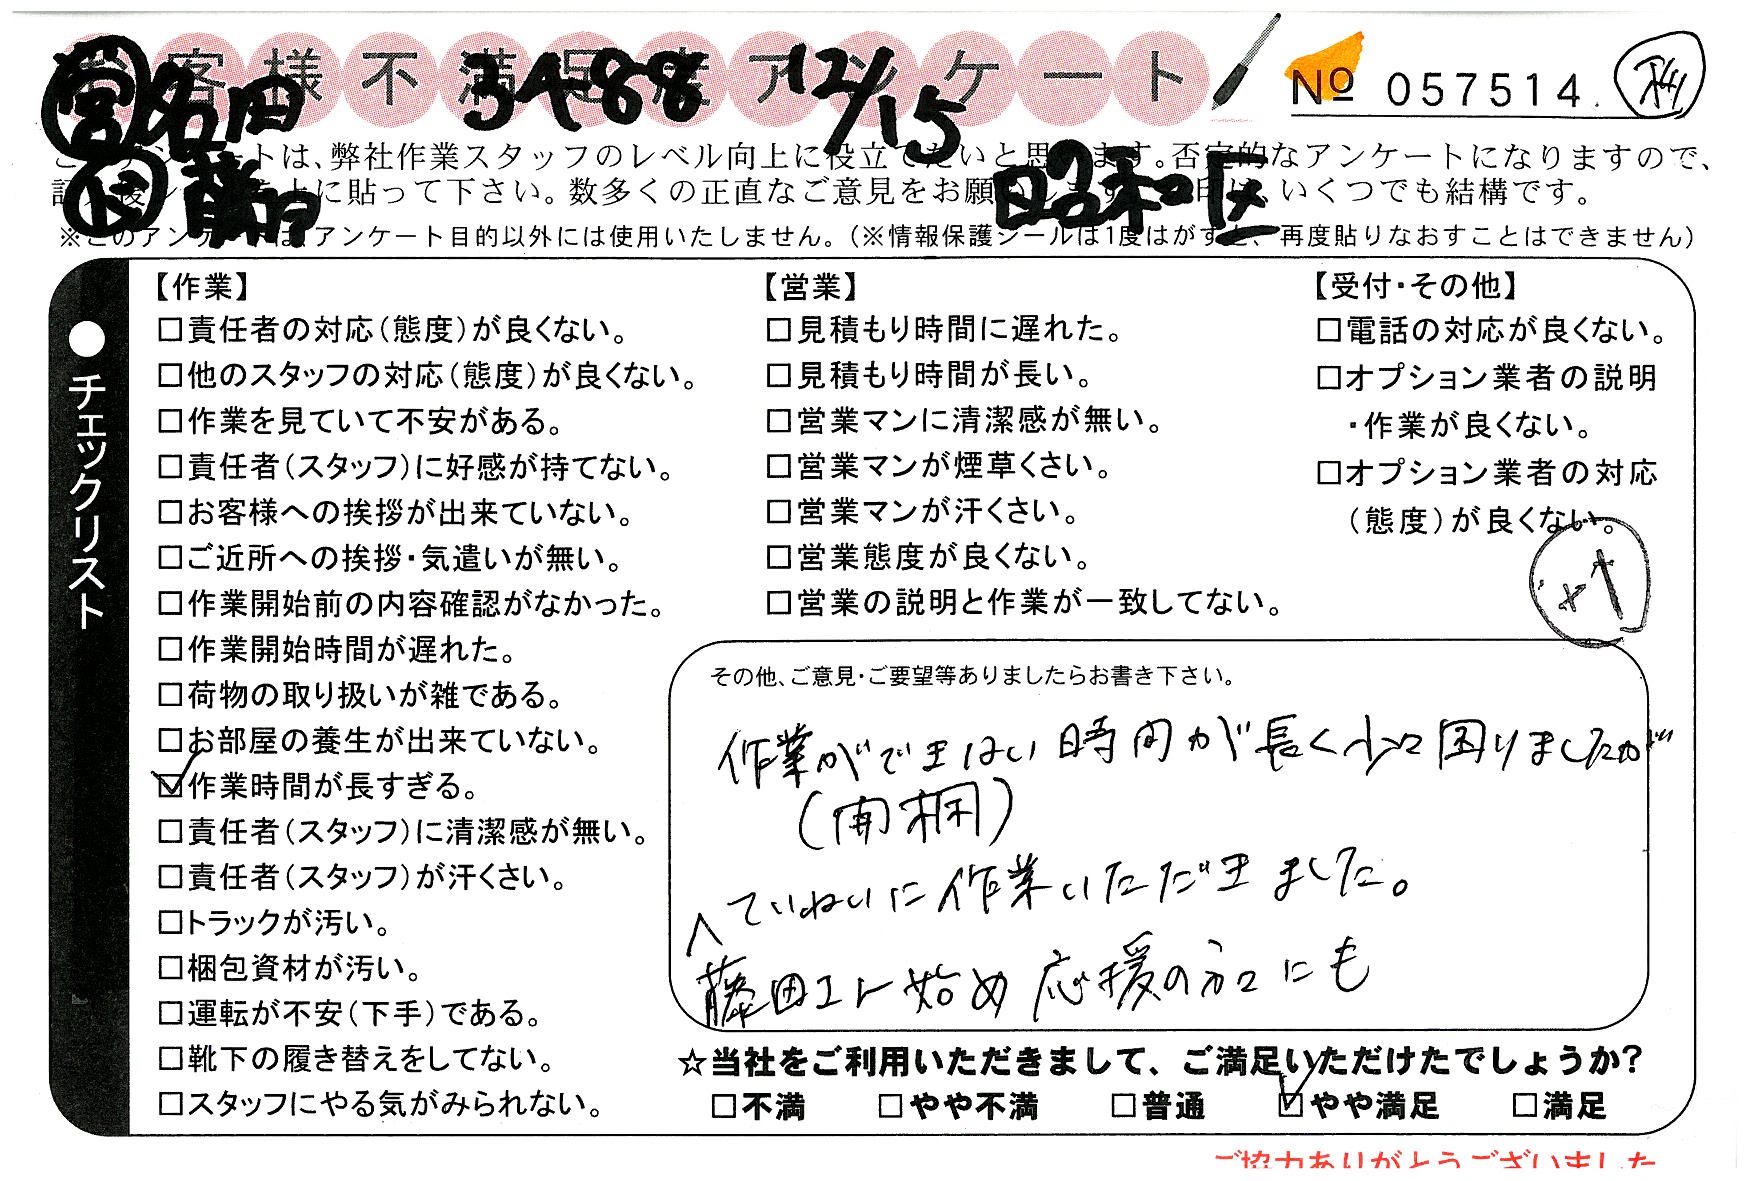 お客様不満足度アンケート
№ 057514.
営 名田 3488 12/15
このアンケートは、弊社作業スタッフのレベル向上に役立てたいと思います。否定的なアンケートになりますので、
に貼って下さい。数多くの正直なご意見をお願いします いくつでも結構です。
藤田 昭和区
※このアンケートは、アンケート目的以外には使用いたしません。(※情報保護シールは1度はがすと、再度貼りなおすことはできません)
●チェックリスト
【作業】
□責任者の対応(態度)が良くない。
□他のスタッフの対応(態度)が良くない。
□作業を見ていて不安がある。
□責任者(スタッフ)に好感が持てない。
□お客様への挨拶が出来ていない。
□ご近所への挨拶・気遣いが無い。
□作業開始前の内容確認がなかった。
□作業開始時間が遅れた。
□荷物の取り扱いが雑である。
□お部屋の養生が出来ていない。
☑作業時間が長すぎる。
□責任者(スタッフ)に清潔感が無い。
□責任者(スタッフ)が汗くさい。
□トラックが汚い。
□梱包資材が汚い。
□運転が不安(下手)である。
□靴下の履き替えをしてない。
□スタッフにやる気がみられない。
【営業】
□見積もり時間に遅れた。
□見積もり時間が長い。
□営業マンに清潔感が無い。
□営業マンが煙草くさい。
□営業マンが汗くさい。
□営業態度が良くない。
□営業の説明と作業が一致してない。
【受付・その他】
□電話の対応が良くない。
□オプション業者の説明
・作業が良くない。
□オプション業者の対応
(態度)が良くない。
その他、ご意見・ご要望等ありましたらお書き下さい。
作業ができない時間が長く少々困りましたが
(開梱)
ていねいに作業いただきました。
藤田 始め応援の方々にも
☆当社をご利用いただきまして、ご満足いただけたでしょうか?
□不満 □やや不満 □普通 ☑やや満足 □満足
ご協力ありがとうございました